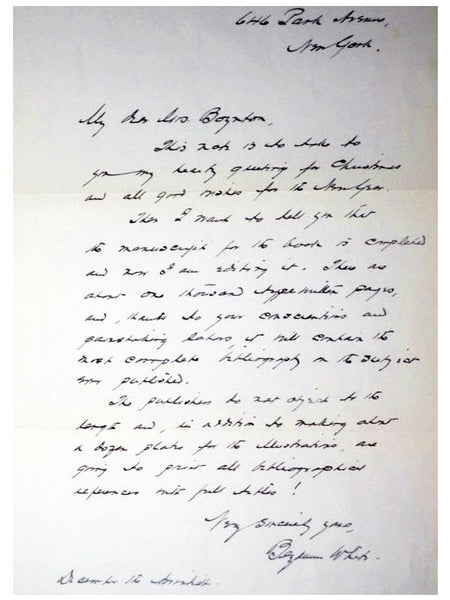 646 Park Avenue,
New York.
My dear Mrs Boynton,
This note is to take to
you my hearty greeting for Christmas
and all good wishes for the New Year.
Then I want to tell you that
the manuscript for the book is completed
and now I am editing it. There are
about one thousand typewritten pages,
and, thanks to your conscientious and
painstaking labors, it will contain the
most complete bibliography on the subject
ever published.
The publishers do not object to the
length and, in addition to making about
a dozen plates for the illustrations, are
going to print all bibliographical
references with full titles!
Very sincerely yours,
Benjamin White.
December the